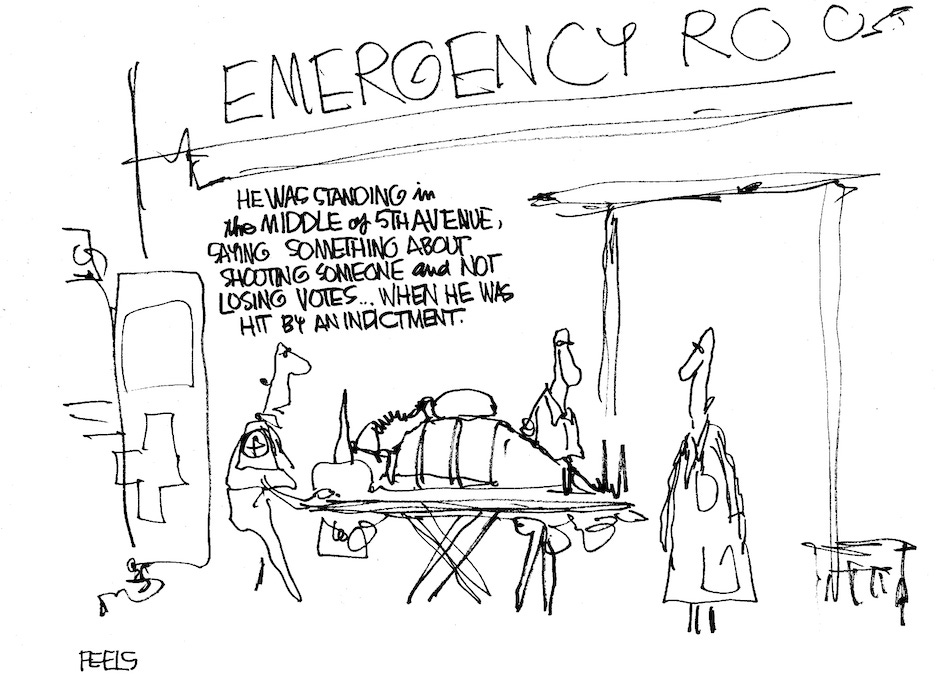 EMERGENCY ROO
HE WAS STANDING in
the MIDDLE of 5TH AVENUE,
SAYING SOMETHING ABOUT
SHOOTING SOMEONE and NOT
LOSING VOTES... WHEN HE WAS
HIT BY AN INDICTMENT.
FEELS